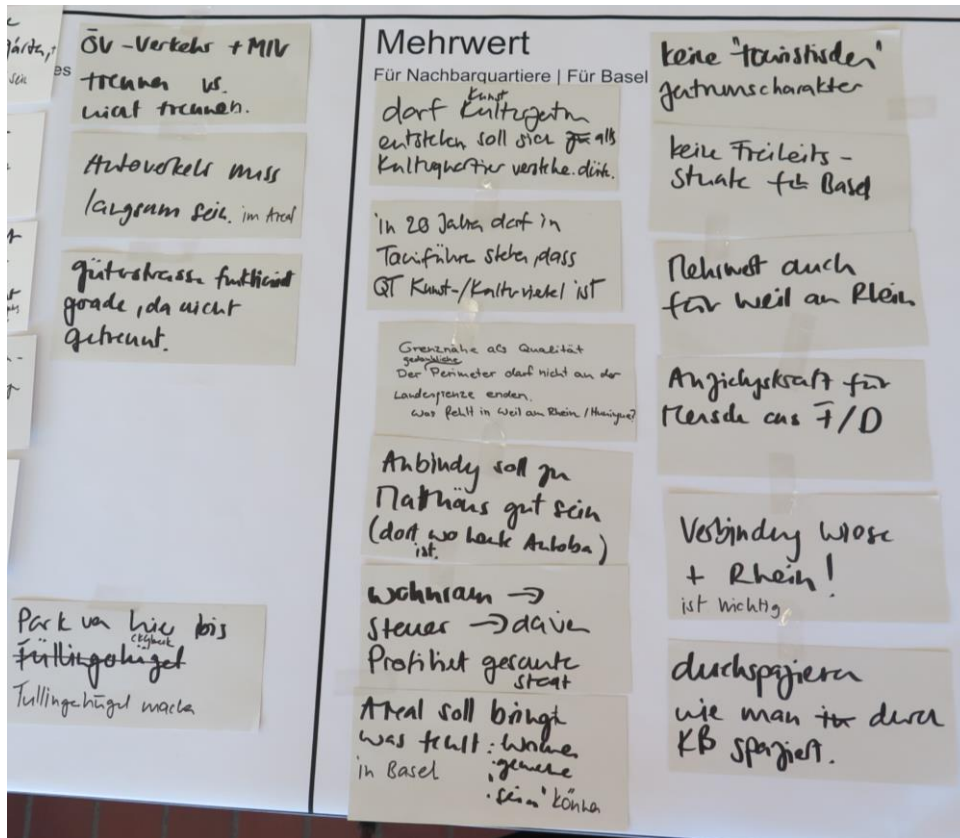 sein
es
ÖV-Verkehr + MIV
trennen vs.
nicht trennen.
Autoverkehr muss
langsam sein. im Areal
güterstrasse funktioniert
gerade, da nicht
getrennt.
Park von hier bis
Tüllingehügel machen
Mehrwert
Für Nachbarquartiere | Für Basel
darf Kunst
entstehen soll sich als
Kulturquartier verstehe. dürfe.
in 20 Jahren darf in
Touriführer stehen, dass
QT Kunst-/Kulturviertel ist
Grenznähe als Qualität
gedankliche
Der Perimeter darf nicht an der
Landesgrenze enden.
Was fehlt in Weil am Rhein / Huningue?
Anbindung soll zu
Matthäus gut sein
(dort wo heute Autoba)
ist.
Wohnraum →
Steuer → davon
Profitiert gesamte
staat
Areal soll bringt
was fehlt: Wohnen
in Basel
"sein" können
keine "touristischen"
zentrumscharakter
keine Freiheits-
statue für Basel
Mehrwert auch
für Weil am Rhein
Anziehungskraft für
Mensch aus F/D
Verbindung Wiese
+ Rhein!
ist wichtig
durchspazieren
wie man durch
KB spaziert.